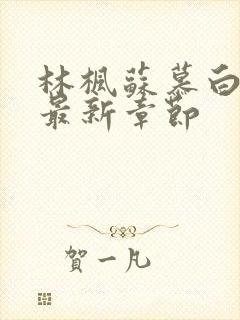 林楓蘇慕白
最新章節
賀一凡